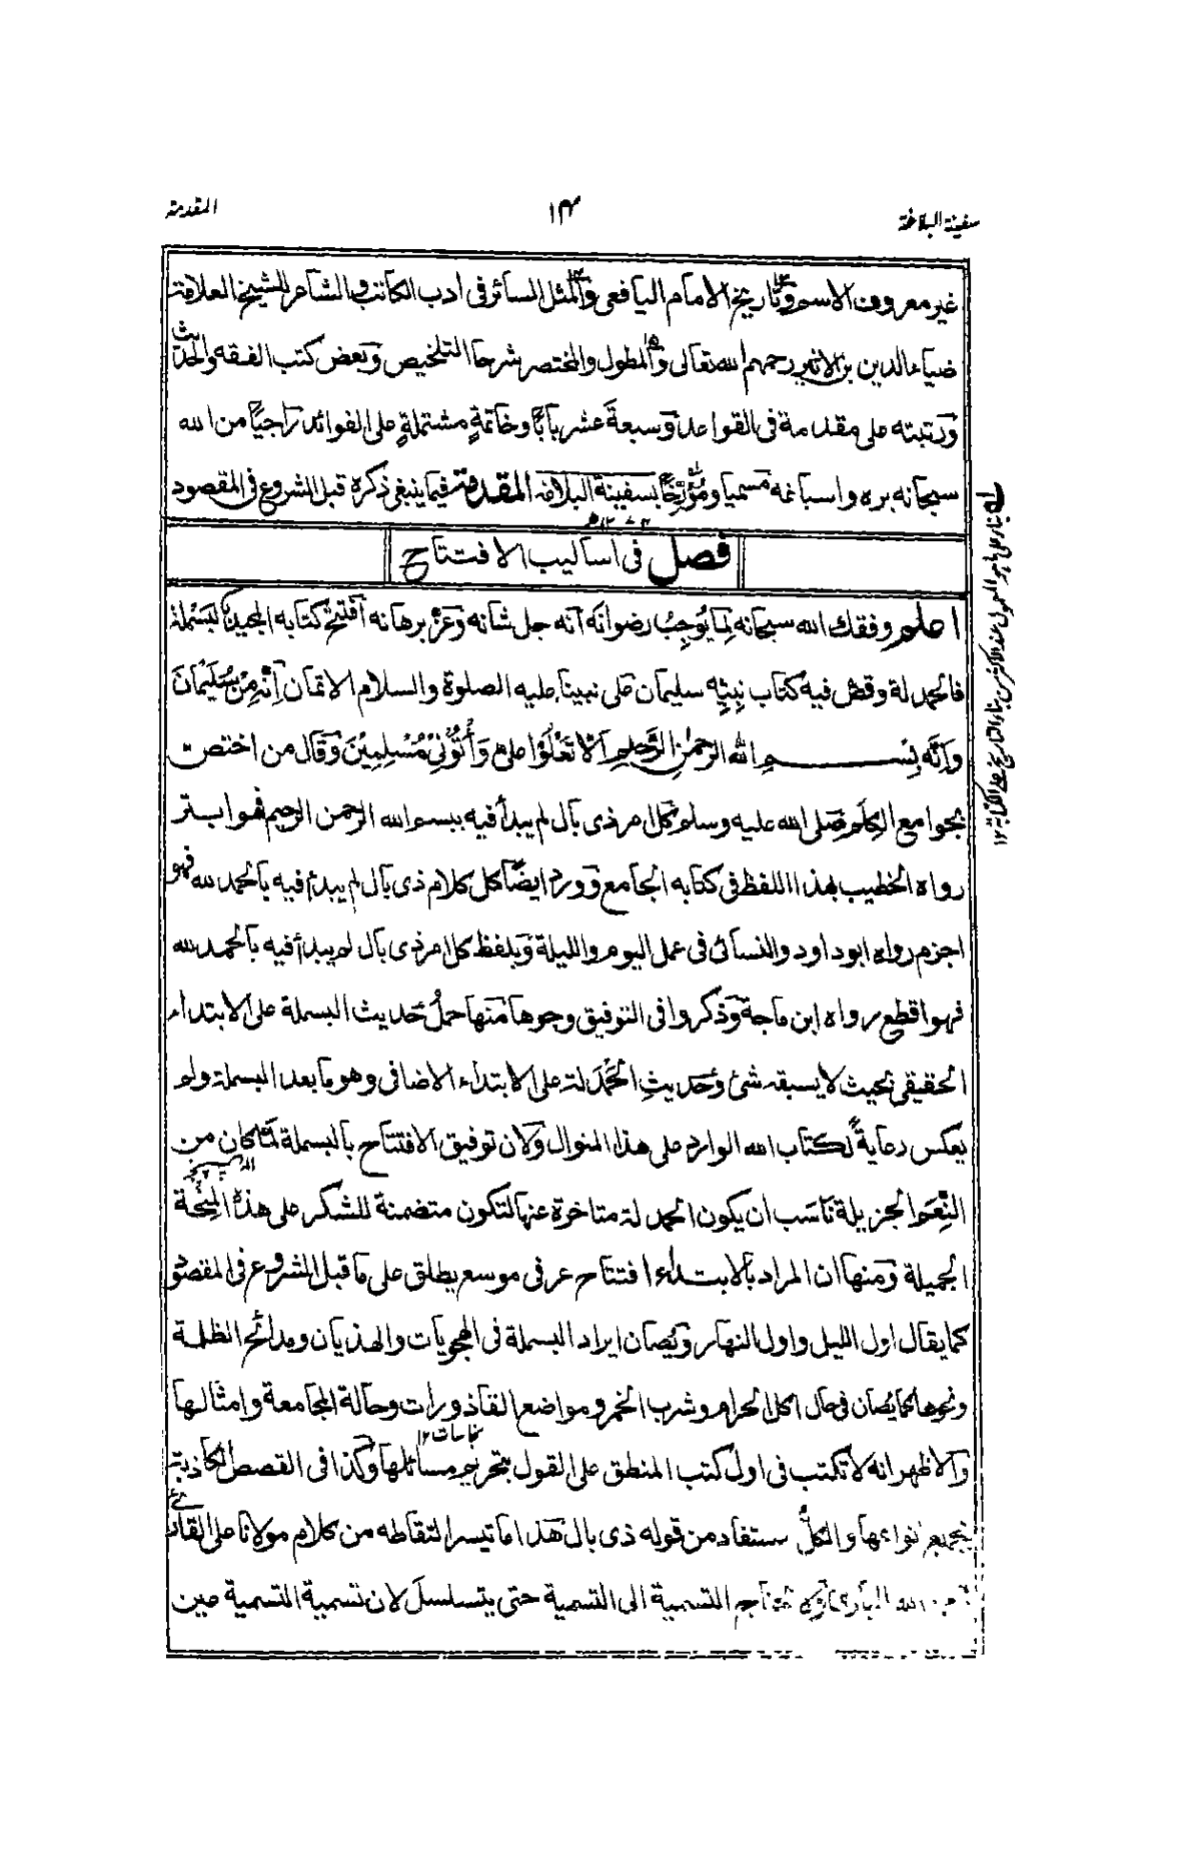 سفينة البلاغة
١٤
المقدمة
غير معروف الاسم وتاريخ الامام اليافعي والمثل السائر في ادب الكاتب والشاعر للشيخ العلامة
ضياء الدين بن الاثير رحمهم الله تعالى والمطول والمختصر شرحا التلخيص وبعض كتب الفقه والحديث
ورتبته على مقدمة في القواعد وسبعة عشر بابًا وخاتمةٍ مشتملةٍ على الفوائد راجيًا من الله
سبحانه بره واسباغه مسميا ومُؤَرِّخًا بسفينة البلاغة المقدمة فيما ينبغي ذكره قبل الشروع في المقصود
فصل في اساليب الافتتاح
اعلم وفقك الله سبحانه لِما يُوجِبُ رضوانه انه جل شانه وعزّ برهانه افتتح كتابه المجيد بالبسملة
فالحمدلة وقصّ فيه كتاب نبيِّه سليمان على نبينا عليه الصلوة والسلام الاتمان اِنَّه مِنْ سُلَيْمَانَ
وَاِنَّه بِسْمِ الله الرحمٰنِ الرَّحِيمِ اَلَّا تَعْلُوْا عليّ وَأْتُوْنِيْ مُسْلِمِيْنَ وقال من اختص
بجوامع الكَلِم صلى الله عليه وسلم كل امر ذى بال لم يبدأ فيه ببسم الله الرحمن الرحيم فهو ابتر
رواه الخطيب بهذا اللفظ في كتابه الجامع وورد ايضًا كل كلام ذى بال لم يبدأ فيه بالحمد لله فهو
اجزم رواه ابو داود والنسائى في عمل اليوم والليلة وبلفظ كل امر ذى بال لم يبدأ فيه بالحمد لله
فهو اقطع رواه ابن ماجة وذكروا في التوفيق وجوها منها حملُ حديث البسملة على الابتداء
الحقيقي بحيث لا يسبقه شئ وحديثِ الحَمْدَلة على الابتداء الاضافى وهو ما بعد البسملة ولم
يعكس رعايةً لكتاب الله الوارد على هذا المنوال ولان توفيق الافتتاح بالبسملة لمّا كان من
النِّعَم الجزيلة ناسَب ان يكون الحمدلة متاخرة عنها لتكون متضمنة للشكر على هذه المِنْحَة
الجميلة ومنها ان المراد بالابتداء افتتاح عرفى موسع يطلق على ما قبل الشروع في المقصود
كما يقال اول الليل واول النهار ويُصان ايراد البسملة في الهجويات والهذيان ومدائح الظلمة
ونحوها كما يُصان في حال اكل الحرام وشرب الخمر ومواضع القاذورات وحالة المجامعة وامثالها
نجاسات ١٢
والاظهر انه لا تكتب في اول كتب المنطق على القول بتحريم مسائلها وكذا في القصص الكاذبة
بجميع انواعها والكلُّ مستفاد من قوله ذى بال هذا ما تيسر التقاطه من كلام مولانا على القارئ
الله البارى ولا تحتاج التسمية الى التسمية حتى يتسلسلَ لان تسمية التسمية عين